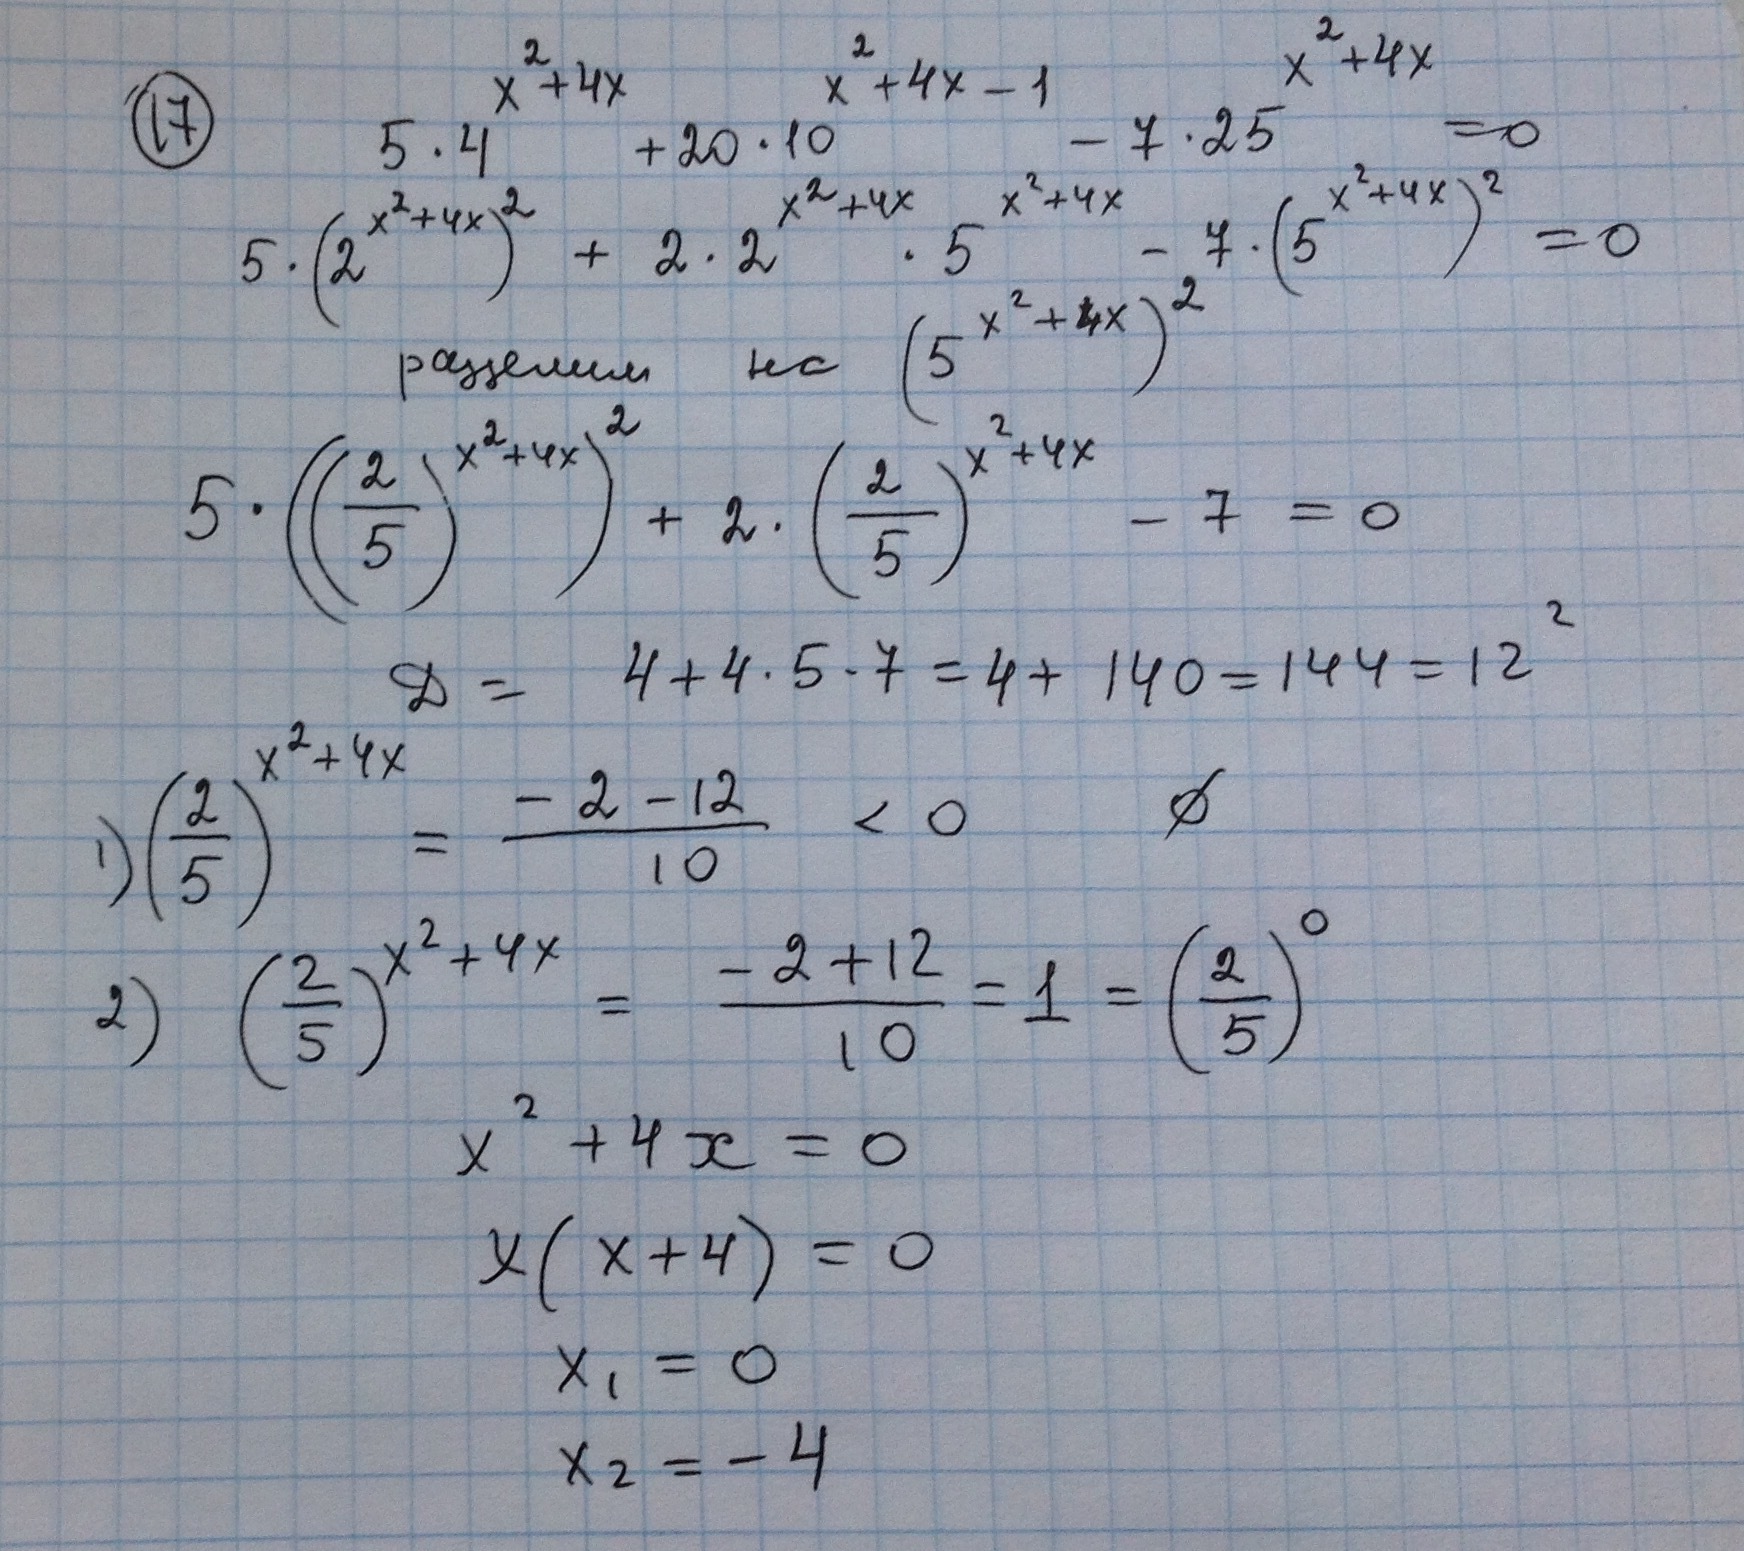 17 5·4^(x²+4x) + 20·10^(x²+4x-1) - 7·25^(x²+4x) = 0
5·(2^(x²+4x))² + 2·2^(x²+4x)·5^(x²+4x) - 7·(5^(x²+4x))² = 0
разделим на (5^(x²+4x))²
5·((2/5)^(x²+4x))² + 2·(2/5)^(x²+4x) - 7 = 0
D = 4+4·5·7 = 4+140 = 144 = 12²
1) (2/5)^(x²+4x) = (-2-12)/10 < 0 ∅
2) (2/5)^(x²+4x) = (-2+12)/10 = 1 = (2/5)^0
x² + 4x = 0
x(x+4) = 0
x₁ = 0
x₂ = -4